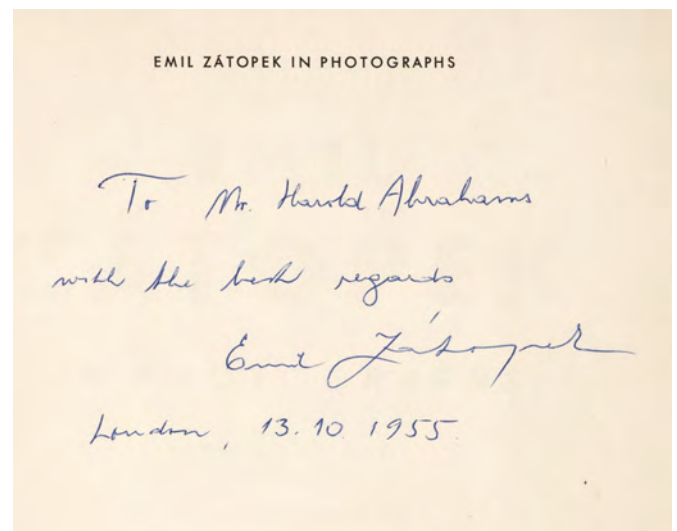 EMIL ZÁTOPEK IN PHOTOGRAPHS
To Mr. Harold Abrahams
with the best regards
Emil Zátopek
London, 13.10.1955.